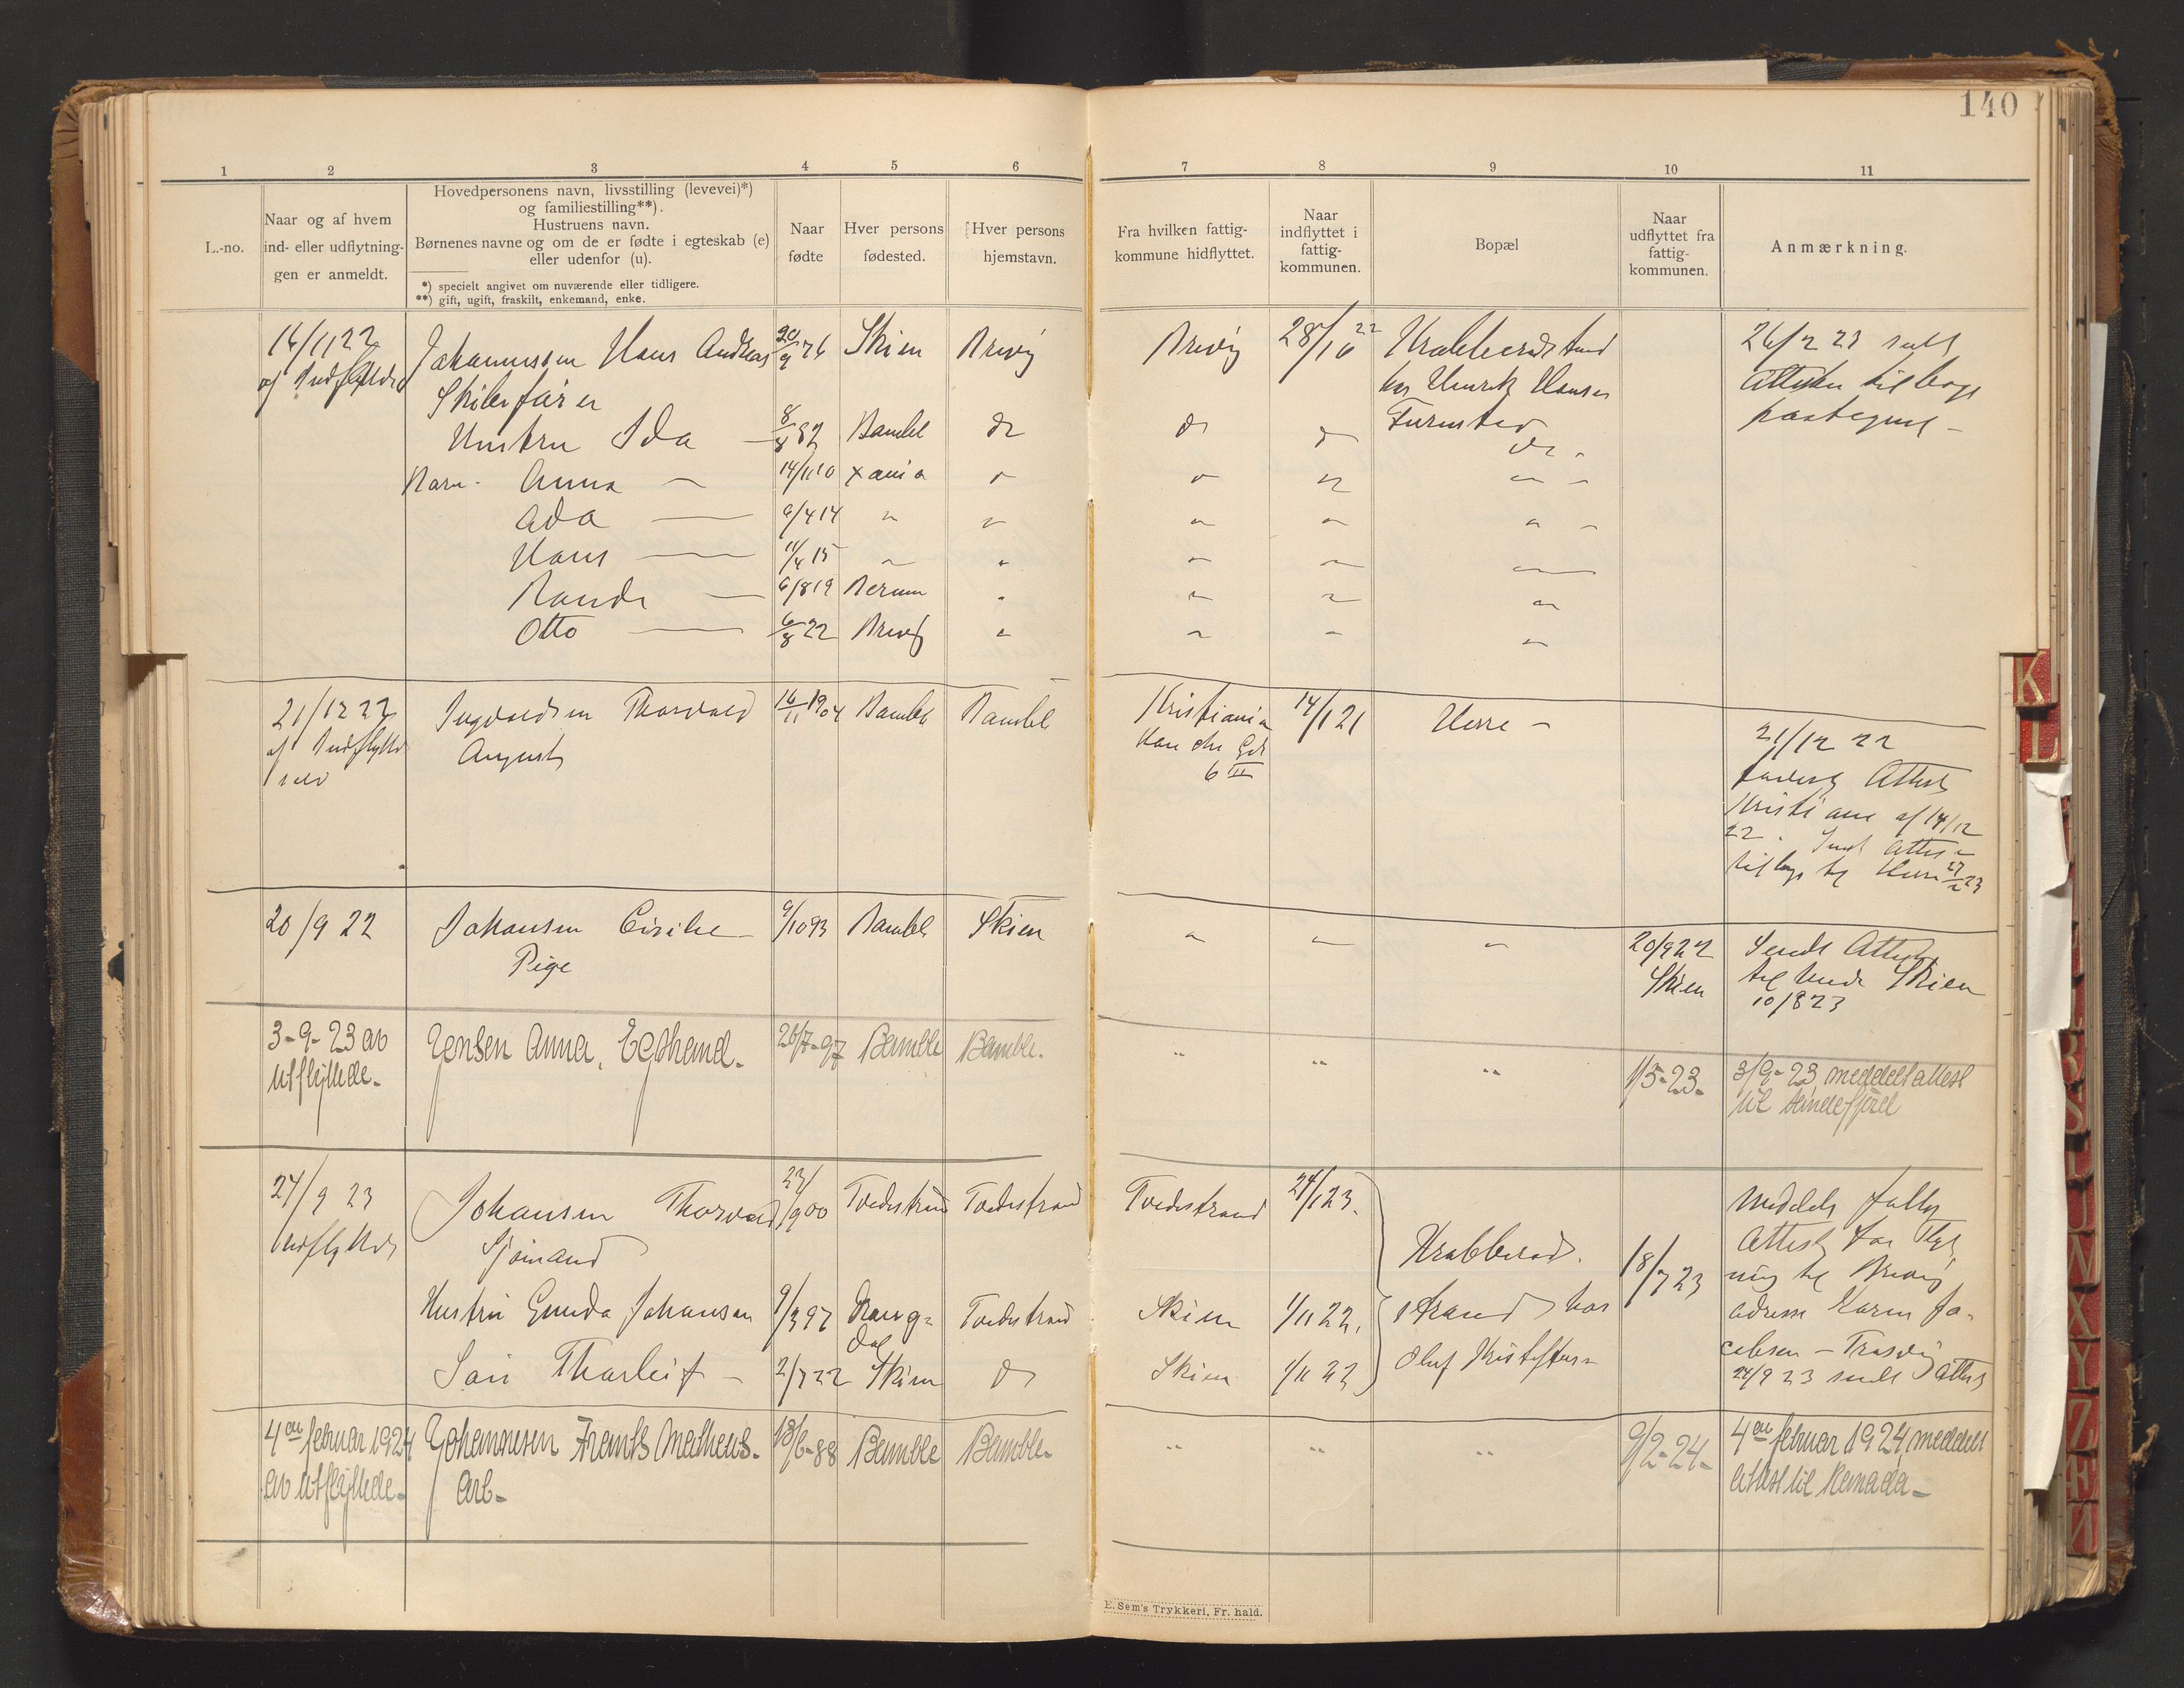 140
1 2 3 4 5 6 7 8 9 10 11
L.-no.
Naar og af hvem
ind- eller udflytnin-
gen er anmeldt.
Hovedpersonens navn, livsstilling (levevei)*)
og familiestilling**).
Hustruens navn.
Børnenes navne og om de er fødte i egteskab (e)
eller udenfor (u).
*) specielt angivet om nuværende eller tidligere.
**) gift, ugift, fraskilt, enkemand, enke.
Naar
fødte
Hver persons
fødested.
Hver persons
hjemstavn.
Fra hvilken fattig-
kommune hidflyttet.
Naar
indflyttet i
fattig-
kommunen.
Bopæl
Naar
udflyttet fra
fattig-
kommunen.
Anmærkning.
16/11 22 Johannessen Hans Andreas 20/9 76 Skien Brevig Brevig 28/10 22 Krabberødstrand 26/2 23 sendt
af Indflyttede Skibsfører hos Henrik Hansen Attesten tilbage
Furustad paategnet -
Hustru Ida 8/8 82 Bamble do do do do
Barn Anna 14/1 10 Xania
Ada 9/4 14 "
Hans 11/4 15
Randi 6/8 19 Berum
Otto 6/8 22 Brevig
21/12 22 Ingvaldsen Thorvald 16/11 1904 Bamble Bamble Kristiania 14/1 21 Herre - 21/12 22
af Indflyttede August
selv 6 III
Attest
Kristiania af 14/12
22. Sendt Attest
tilbage til Herre 27/2 23
20/9 22 Johansen Cicilie 9/10 93 Bamble Skien " " " 20/9 22 Sendt Attest
Pige Skien Skien
10/8 23
3-9-23 av Jensen Anna, Egthand. 26/7-97 Bamble Bamble. " " " 1/5-23- 3/9-23 meddelt attest
utflyttede- til Sandefjord
24/9 23 Johansen Thorvald 23/9 00 Tvedestrand Tvedestrand Tvedestrand 24/1 23. Krabberød- 18/7 23 Meddelt
Indflyttede Sjømand Attest for Flyt
ning til Brevig
Hustru Gunda Johansen 9/3 97 Drang- Tvedestrand Skien 1/11 22. strand hos adresse Karen Ja-
dal
Søn Thorleif - 2/7 22 Skien do Skien 1/11 22 Oluf Kristoffersen cobsen - Trosvig
24/9 23 sendt Attest
4de februar 1924 Johannesen Frants Matheus- 18/6-88 Bamble Bamble- " " " 9/2-24- 4de februar 1924 meddelt
av utflyttede- Arb- attest til Kanada-
E. Sem's Trykkeri, Fr. hald.
K
L
R
S
T
U
W
X
Y
Z
Æ
Ø